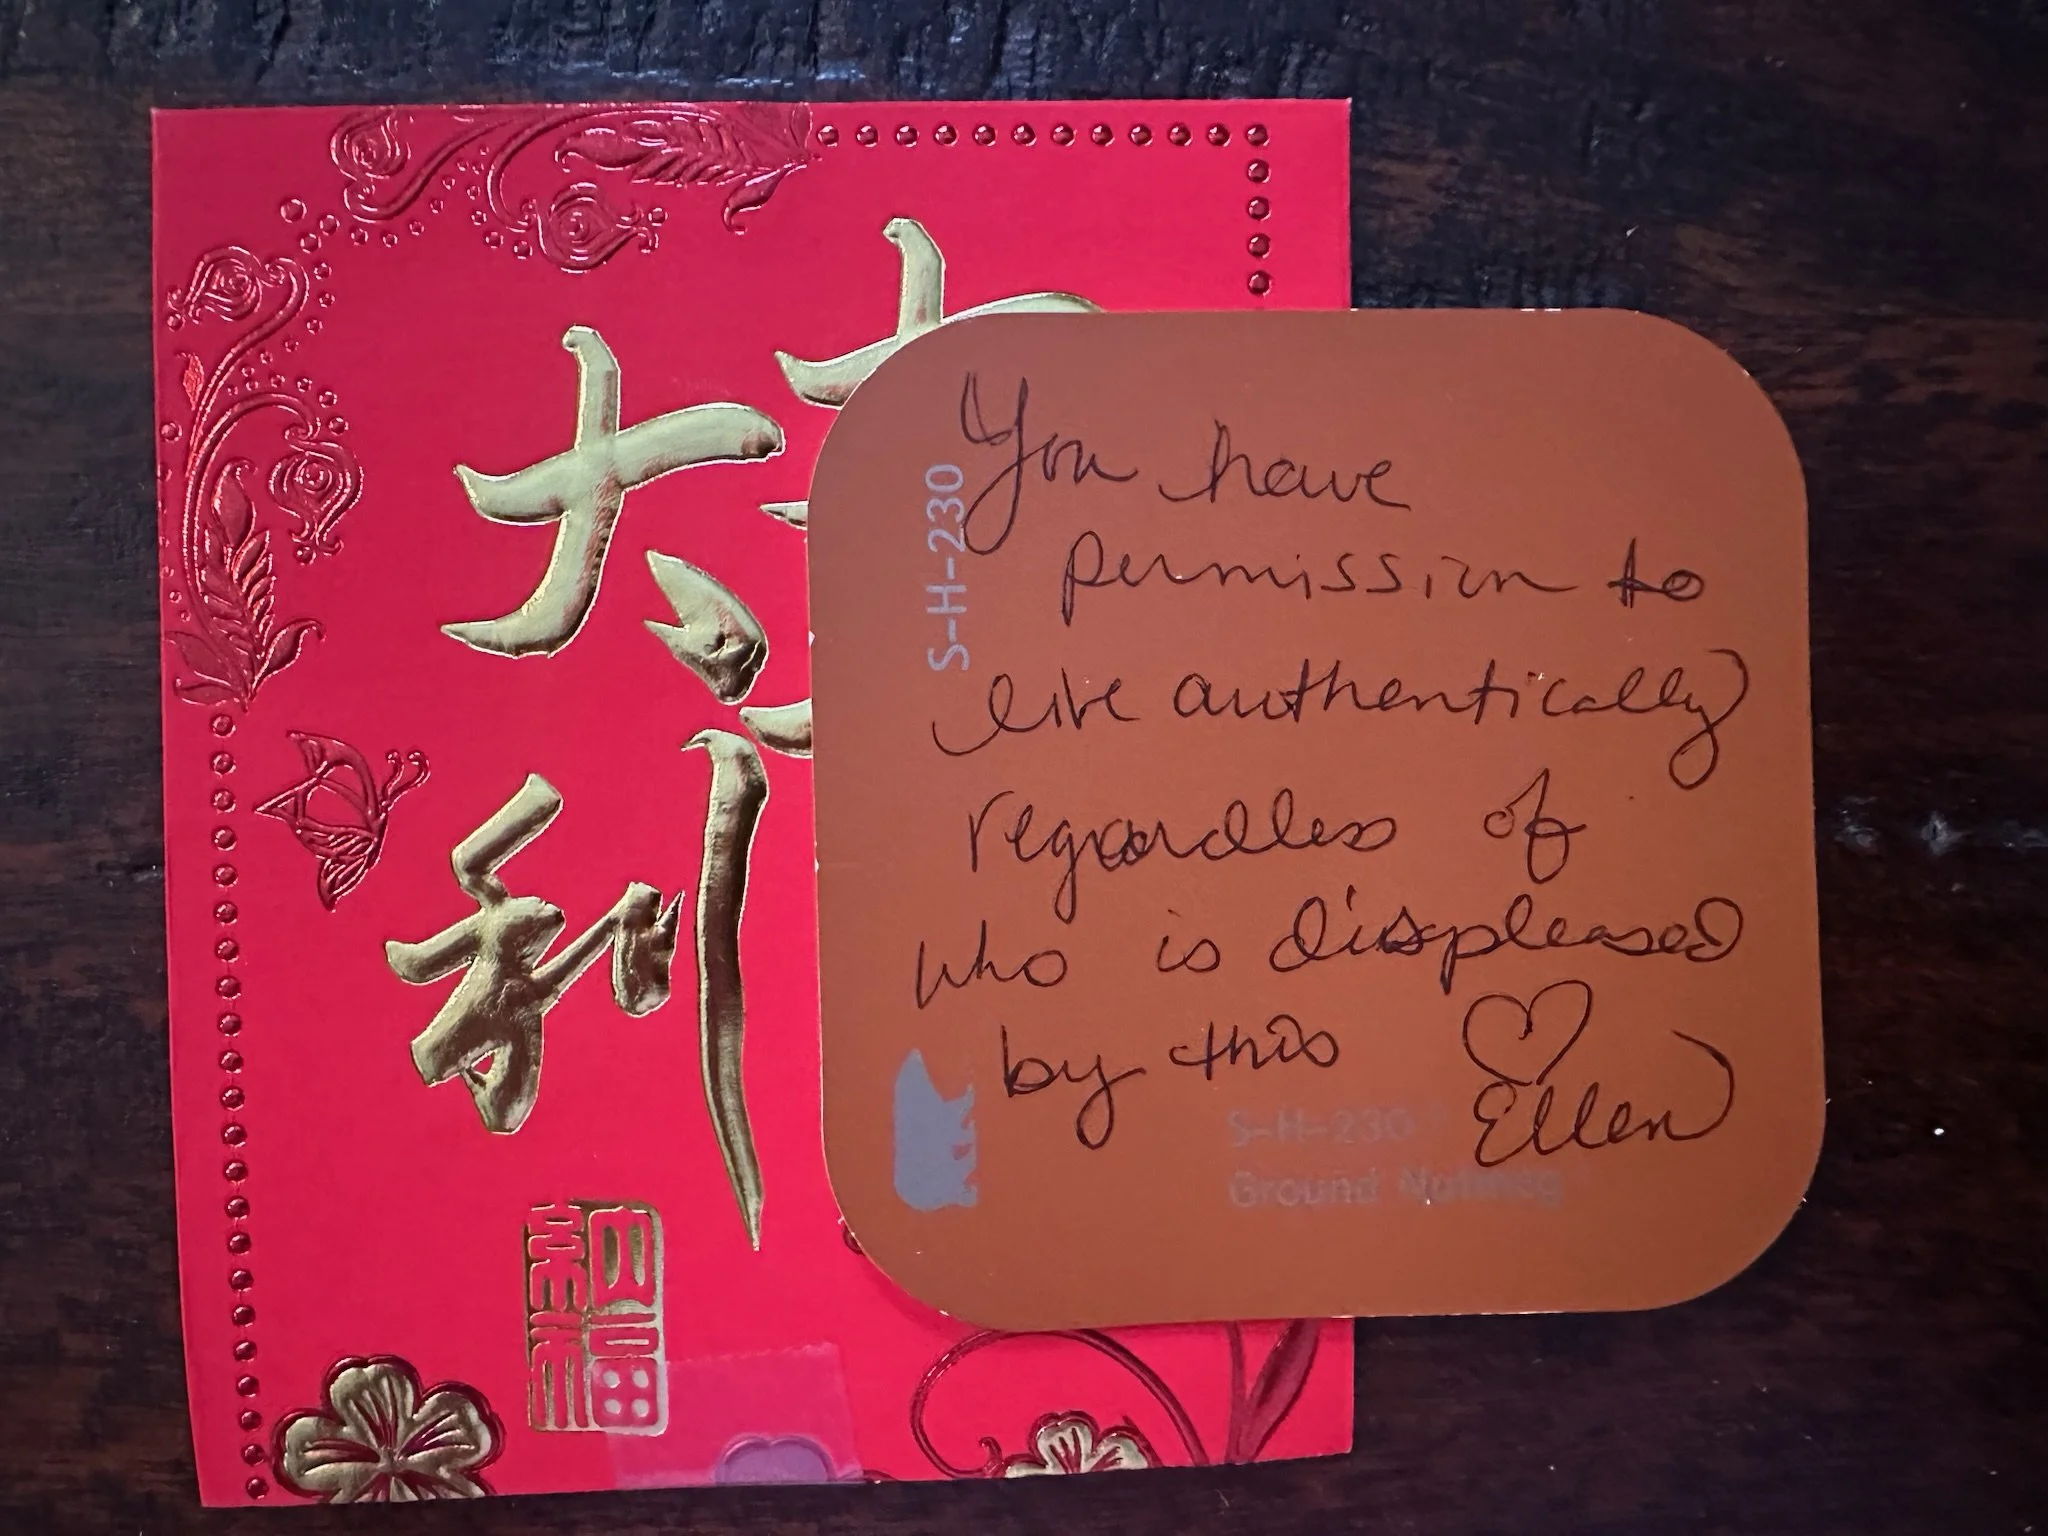 大利
S-H-230
You have
permission to
live authentically
regardless of
who is displeased
by this ♡
Ellen
S-H-230
Ground Nutmeg